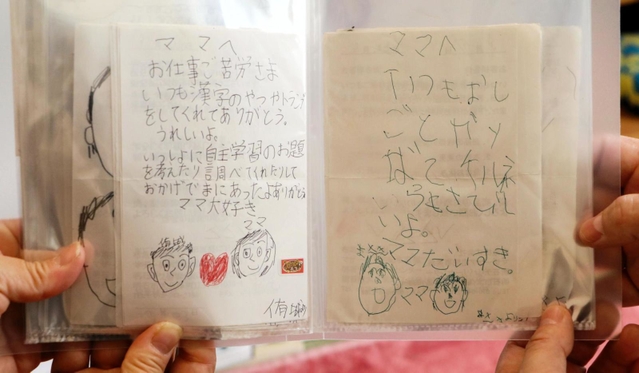 ママへ
お仕事ご苦労さま
いつも漢字のやつかトランプ
をしてくれてありがとう。
うれしいよ。
いっしょに自主学習のお題
を考えたり調べてくれたりして
おかげでまにあったよありがとう
ママ大好き
ママ
ママへ
いつもおし
ごとガン
ばてケルネ
いつもさてれし
いよ。
ママだいすき。
ママ